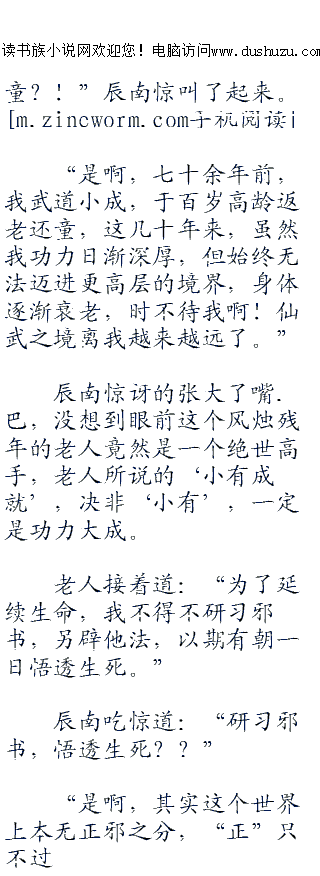 读书族小说网欢迎您！电脑访问www.dushuzu.com
童？！”辰南惊叫了起来。
[m.zincworm.com手机阅读]
“是啊，七十余年前，
我武道小成，于百岁高龄返
老还童，这几十年来，虽然
我功力日渐深厚，但始终无
法迈进更高层的境界，身体
逐渐衰老，时不待我啊！仙
武之境离我越来越远了。”
辰南惊讶的张大了嘴
巴，没想到眼前这个风烛残
年的老人竟然是一个绝世高
手，老人所说的‘小有成
就’，决非‘小有’，一定
是功力大成。
老人接着道：“为了延
续生命，我不得不研习邪
书，另辟他法，以期有朝一
日悟透生死。”
辰南吃惊道：“研习邪
书，悟透生死？？”
“是啊，其实这个世界
上本无正邪之分，“正”只
不过